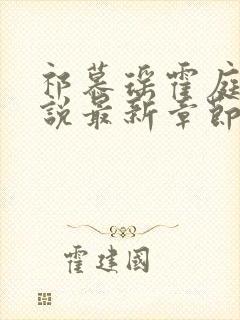 祁慕瑶霍庭
说最新章節
霍建國